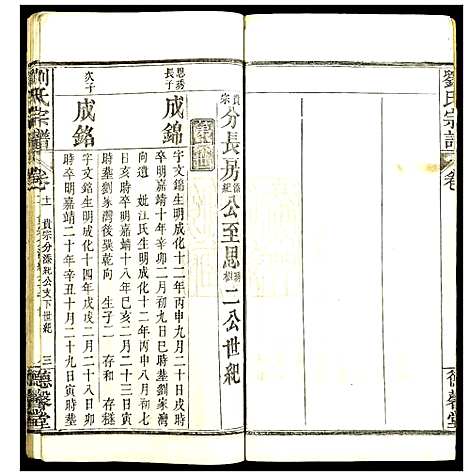 劉氏宗譜
卷
德馨堂
貴宗分長房添紀公至思二公世紀
思琇長子
成錦
字文錦生明成化十二年丙申九月二十日戌時
卒明嘉靖十年辛卯二月初九日巳時葬劉家灣
向遺 妣江氏生明成化十二年丙申八月初七
日亥時卒明嘉靖十八年己亥二月二十三日寅
時葬劉家灣後巽乾向 生子二 存和 存穟
次子
成銘
字文銘生明成化十四年戊戌二月二十八日卯
時卒明嘉靖二十年辛丑十月二十九日寅時葬
劉氏宗譜
卷十二
貴宗分添紀公支下世紀
三
德馨堂